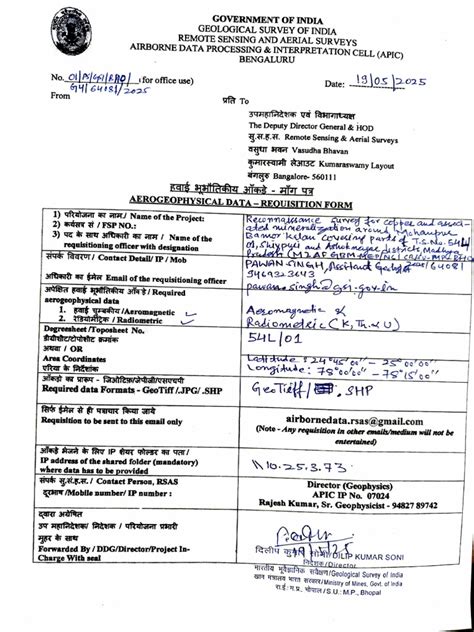 GOVERNMENT OF INDIA
GEOLOGICAL SURVEY OF INDIA
REMOTE SENSING AND AERIAL SURVEYS
AIRBORNE DATA PROCESSING & INTERPRETATION CELL (APIC)
BENGALURU
(for office use)
Date: 19/05/2025
From
प्रति To
उपमहानिदेशक एवं विभागाध्यक्ष
The Deputy Director General & HOD
सु.सं.ह.स. Remote Sensing & Aerial Surveys
वसुधा भवन Vasudha Bhavan
कुमारस्वामी लेआउट Kumaraswamy Layout
बंगलुरु Bangalore- 560111
हवाई भूभौतिकीय आँकड़े - माँग पत्र
AEROGEOPHYSICAL DATA – REQUISITION FORM
1) परियोजना का नाम / Name of the Project:
2) / FSP NO.:
3) पद के साथ अधिकारी का नाम / Name of the
requisitioning officer with designation
Reconnaissance survey for copper and
mineralization around
covering parts of T.S.No. 54L/
01, Shivpuri and districts, Madhya
Pradesh
संपर्क विवरण / Contact Detail/ IP / Mob
PAWAN SINGH, Assistant Geologist
अधिकारी का ईमेल Email of the requisitioning officer
pawan.singh@gsi.gov.in
अपेक्षित हवाई भूभौतिकीय आँकड़े / Required
aerogeophysical data
1. हवाई चुम्बकीय /Aeromagnetic
2. रेडियोमैट्रिक / Radiometric
Aeromagnetic &
Radiometric (K, Th & U)
Degreesheet /Toposheet No.
डीग्रीशीट/टोपोशीट क्रमांक
अथवा / OR
Area Coordinates
एरिया के निर्देशांक
54L/01
Latitude: 24°45'00" - 25°00'00"
Longitude: 78°00'00" - 78°15'00"
आँकड़ो का प्रारूप - जिओटिफ/जेपीजी/एसएचपी
Required data Formats - GeoTiff /.JPG/ .SHP
GeoTiff / .SHP
सिर्फ ईमेल से ही पत्राचार किया जाये
Requisition to be sent to this email only
airbornedata.rsas@gmail.com
(Note - Any requisition in other emails/medium will not be
entertained)
आँकड़े भेजने के लिए IP शेयर फोल्डर का पता /
IP address of the shared folder (mandatory)
where data has to be provided
\\10.25.3.73
संपर्क सु.सं.ह.स. / Contact Person, RSAS
दूरभाष /Mobile number/ IP number :
Director (Geophysics)
APIC IP No. 07024
Rajesh Kumar, Sr. Geophysicist - 94827 89742
द्वारा अग्रेषित
उप महानिदेशक/ निदेशक / परियोजना प्रभारी
मुहर के साथ
Forwarded By / DDG/Director/Project In-
Charge With seal
दिलीप कुमार सोनी/DILIP KUMAR SONI
निदेशक/Director
भारतीय भूवैज्ञानिक सर्वेक्षण/Geological Survey of India
खान मंत्रालय भारत सरकार/Ministry of Mines, Govt. of India
रा.ई.: म.प्र., भोपाल/S.U.: M.P., Bhopal